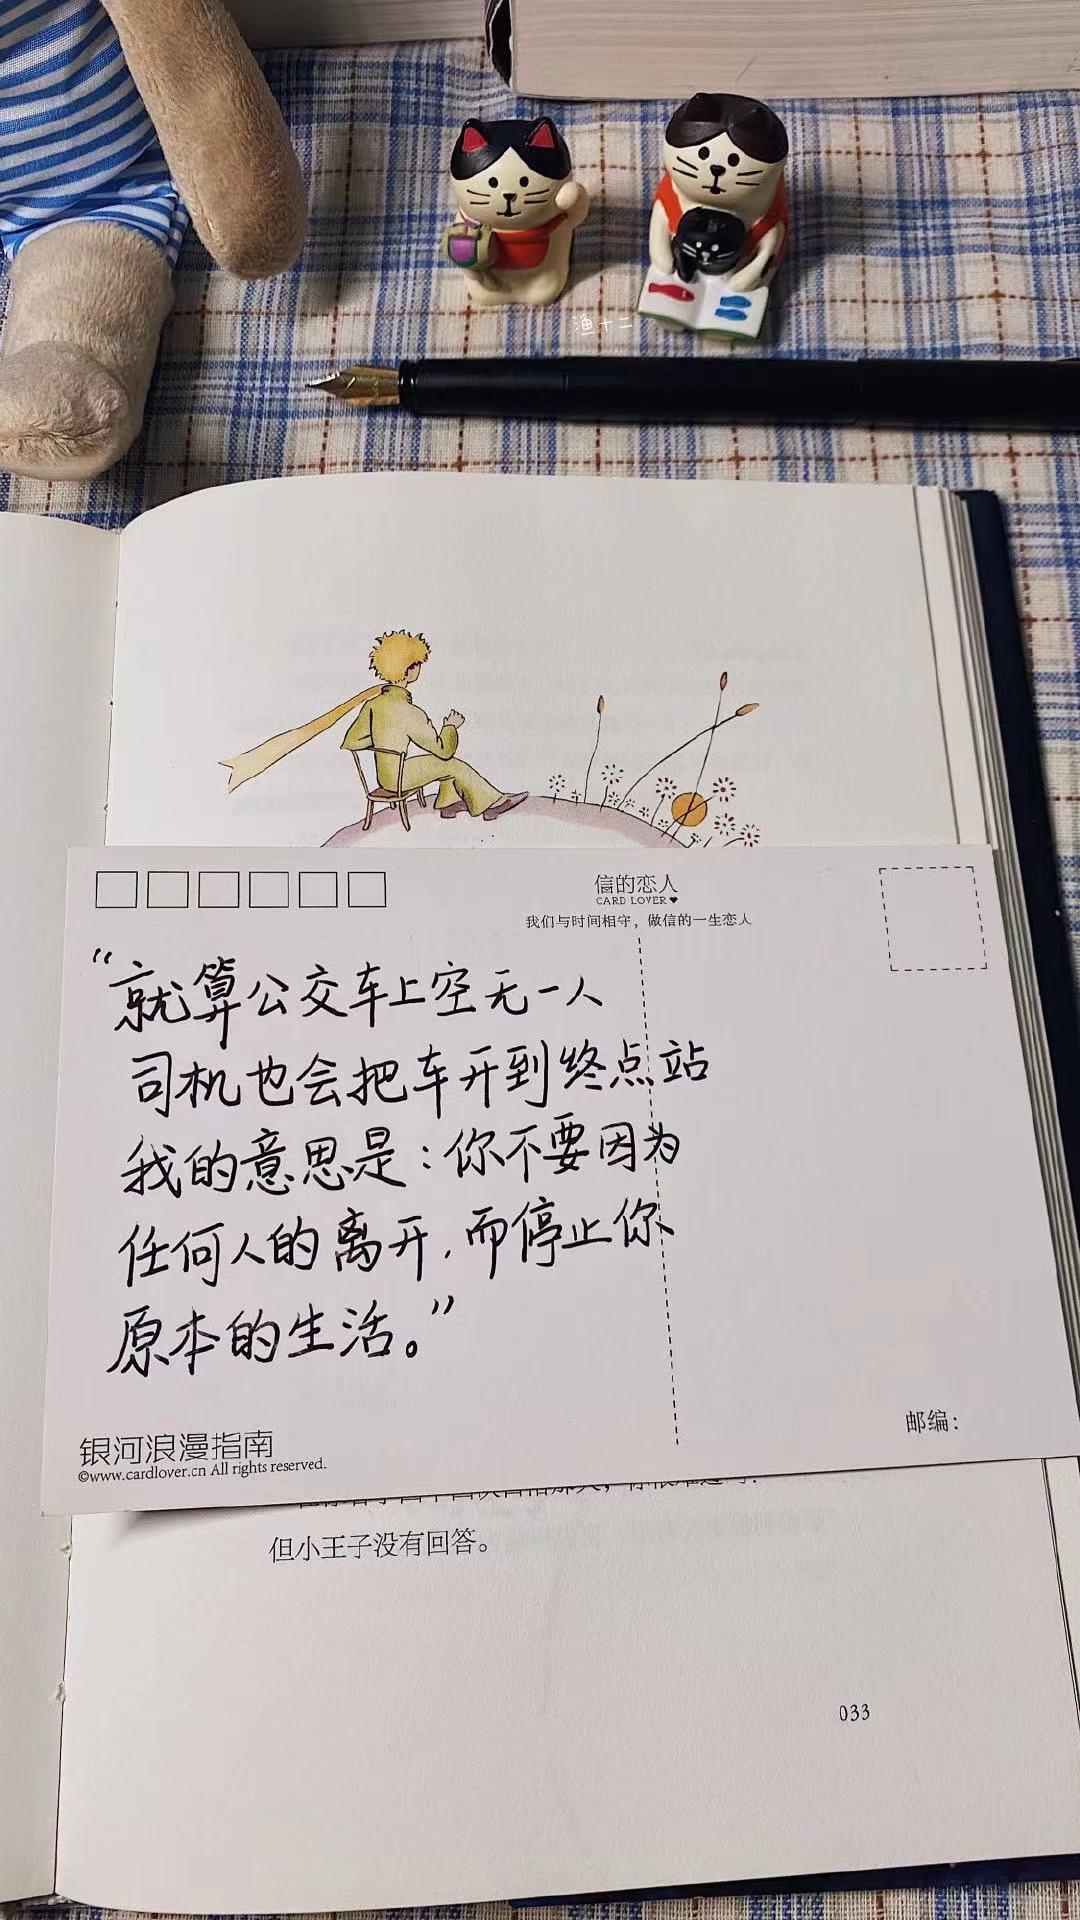 渔十二
信的恋人
CARD LOVER♥
我们与时间相守，做信的一生恋人
“就算公交车上空无一人
司机也会把车开到终点站
我的意思是：你不要因为
任何人的离开，而停止你
原本的生活。”
邮编：
银河浪漫指南
©www.cardlover.cn All rights reserved.
但小王子没有回答。
033